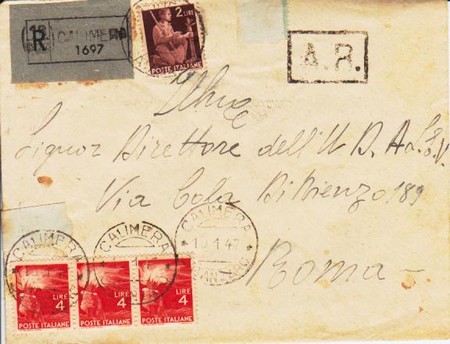 R CALIMERA
1697
2 LIRE
POSTE ITALIANE
A. R.
Signor Direttore dell'U
Via Cola Di Rienzo 189
Roma
CALIMERA
CALIMERA
CALIMERA
LIRE 4
POSTE ITALIANE
LIRE 4
POSTE ITALIANE
LIRE 4
POSTE ITALIANE